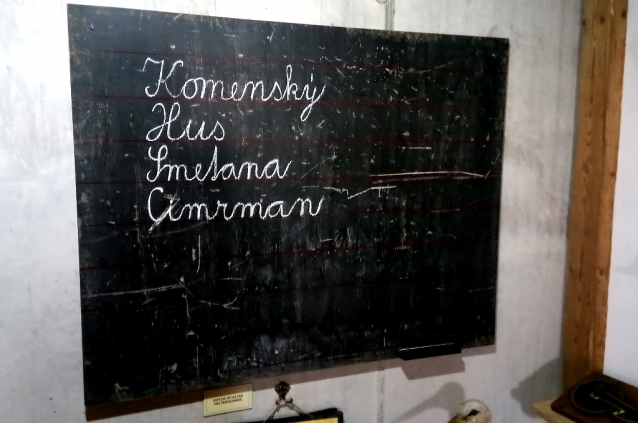 Komenský
Hus
Smetana
Cimrman